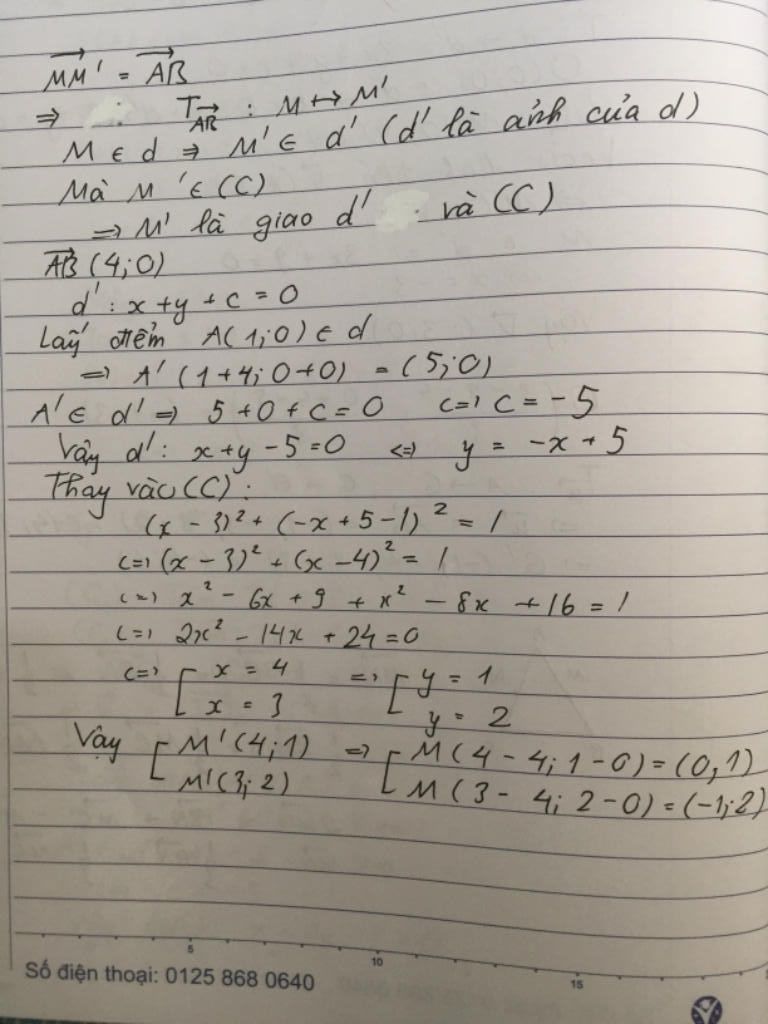 MM' = AB
⇒ T_AB : M ↦ M'
M ∈ d ⇒ M' ∈ d' (d' là ảnh của d)
Mà M' ∈ (C)
⇒ M' là giao d' và (C)
AB (4;0)
d' : x + y + c = 0
Lấy điểm A(1;0) ∈ d
⇒ A' (1+4; 0+0) = (5;0)
A' ∈ d' ⇒ 5 + 0 + c = 0 <=> c = -5
Vậy d' : x + y - 5 = 0 <=> y = -x + 5
Thay vào (C) :
(x - 3)² + (-x + 5 - 1)² = 1
<=> (x - 3)² + (x - 4)² = 1
<=> x² - 6x + 9 + x² - 8x + 16 = 1
<=> 2x² - 14x + 24 = 0
<=> [ x = 4 => [ y = 1
x = 3 y = 2
Vậy [ M'(4;1) => [ M (4 - 4; 1 - 0) = (0,1)
M'(3;2) M (3 - 4; 2 - 0) = (-1;2)
5 10 15
Số điện thoại: 0125 868 0640